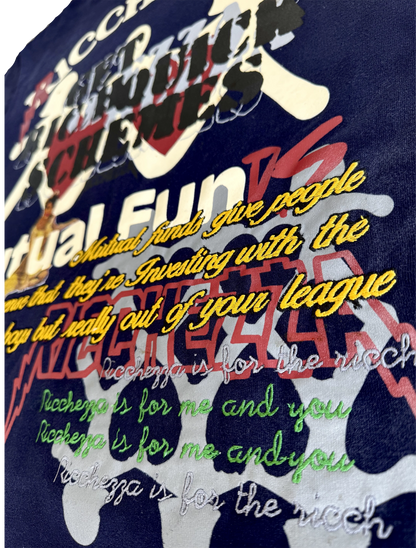 RICCH
GET
RICH QUICK
SCHEMES
Mutual FunDS
Mutual funds give people
that they're Investing with the
boys but really out of your league
RICCHEZZA
Ricchezza is for the ricch
Ricchezza is for me and you
Ricchezza is for me and you
Ricchezza is for the ricch